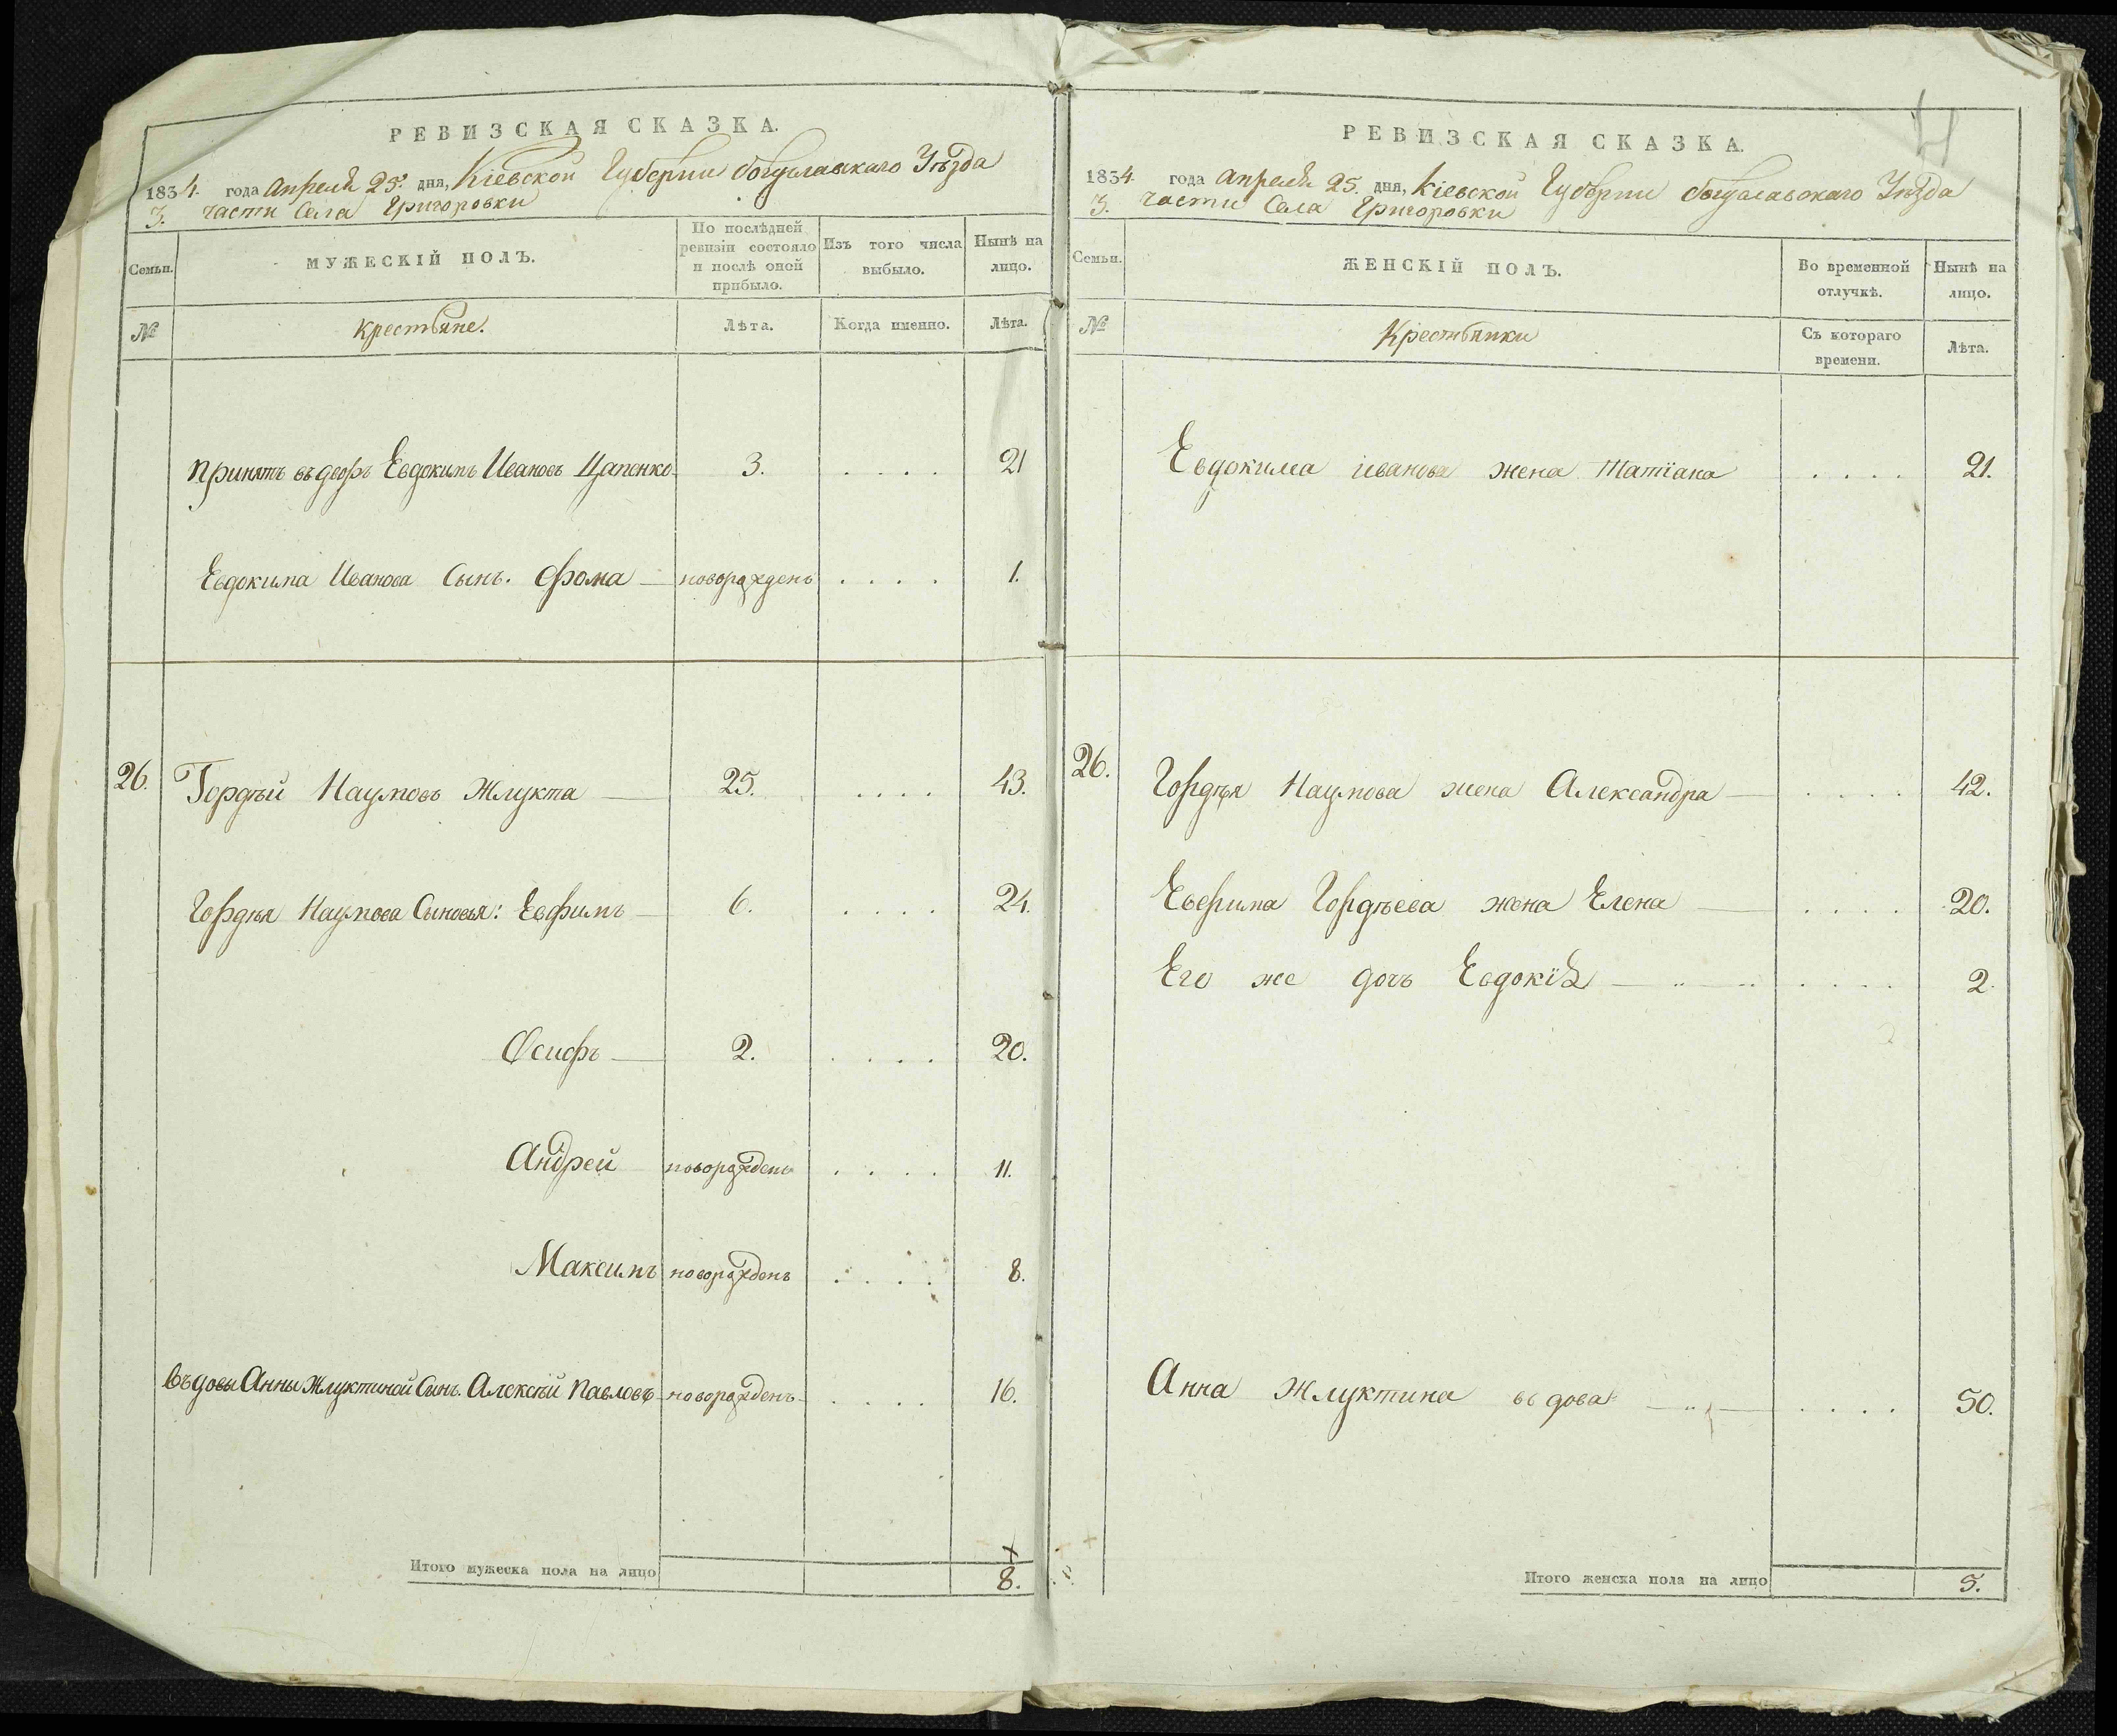 РЕВИЗСКАЯ СКАЗКА.
1834. года Апреля 25. дня, Кіевской Губерніи Богуславскаго Уѣзда
3. части Села Григоровки
Семьи.
МУЖЕСКІЙ ПОЛЪ.
По послѣдней ревизіи состояло и послѣ оной прибыло.
Изъ того числа выбыло.
Нынѣ на лицо.
№
Крестьяне.
Лѣта.
Когда именно.
Лѣта.
Принятъ въ дворъ Евдокимъ Ивановъ Цапенко 3. . . . . 21
Евдокима Иванова Сынъ. Фома — новорожденъ . . . . 1.
26. Гордѣй Наумовъ Жлукта — 25. . . . . 43.
Гордѣя Наумова Сыновья: Евфимъ — 6. . . . . 24.
Осифъ — 2. . . . . 20.
Андрей новорожденъ . . . . 11.
Максимъ новорожденъ . . . . 8.
Въдовы Анны Жлуктиной Сынъ. Алексѣй Павловъ новорожденъ . . . . 16.
Итого мужеска пола на лицо 8.
РЕВИЗСКАЯ СКАЗКА.
1834 года Апреля 25. дня, Кіевской Губерніи Богуславскаго Уѣзда
3. части Села Григоровки
Семьи.
ЖЕНСКІЙ ПОЛЪ.
Во временной отлучкѣ.
Нынѣ на лицо.
№
Крестьянки
Съ котораго времени.
Лѣта.
Евдокима Иванова жена Татіана . . . . 21.
26. Гордѣя Наумова жена Александра — . . . . 42.
Евфима Гордѣева жена Елена — . . . . 20.
Его же дочь Евдокія — . . . . 2.
Анна Жлуктина въдова — . . . . 50.
Итого женска пола на лицо 5.